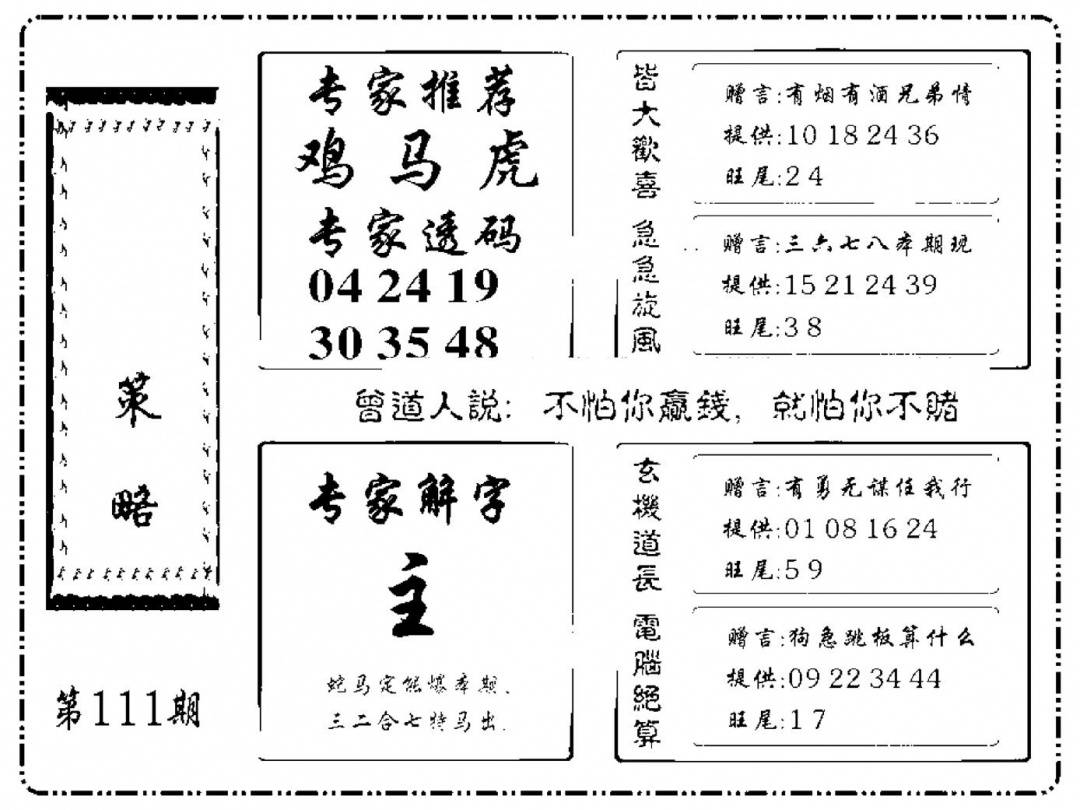 策略
第111期
专家推荐
鸡马虎
专家透码
04 24 19
30 35 48
皆大歡喜
赠言:有烟有酒兄弟情
提供:10 18 24 36
旺尾:2 4
急急旋風
赠言:三六七八本期现
提供:15 21 24 39
旺尾:3 8
曾道人説: 不怕你贏錢, 就怕你不賭
专家解字
主
蛇马定能爆本期.
三二合七特马出.
玄機道長
赠言:有勇无谋任我行
提供:01 08 16 24
旺尾:5 9
電腦絕算
赠言:狗急跳板算什么
提供:09 22 34 44
旺尾:1 7